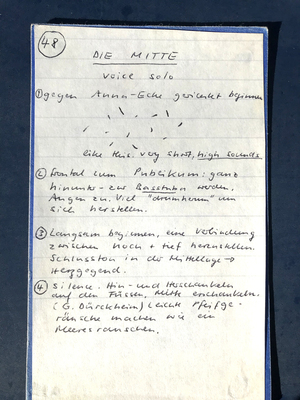 48
DIE MITTE
voice solo
① gegen Anna-Ecke gerichtet beginnen
like this: very short, high sounds.
② frontal zum Publikum: ganz
hinunter - zur Basstuba werden.
Augen zu. Viel "drumherum" um
sich herstellen.
③ Langsam beginnen, eine Verbindung
zwischen hoch + tief herzustellen.
Schlusston in der Mittellage →
Herzgegend.
④ Silence. Hin- und Herschaukeln
auf den Füssen, Mitte erschaukeln.
(G. Dürckheim) Leicht Pfeifge-
räusche machen wie ein
Meeresrauschen.